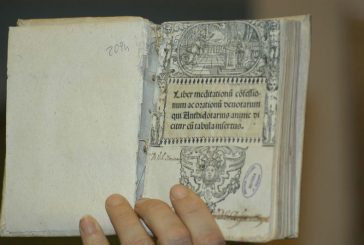 2094
Liber meditationũ cõfessio
num ac orationũ devotarum
qui Anthidotarius anime di
citur cũ tabula insertus.